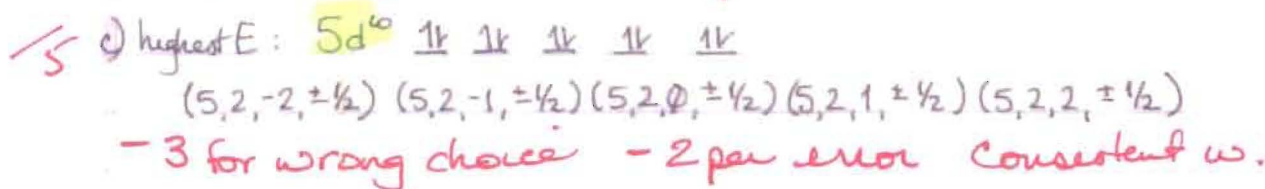 /5 c) highest E: 5d¹⁰ 1↓ 1↓ 1↓ 1↓ 1↓
(5,2,-2,±½) (5,2,-1,±½) (5,2,0,±½) (5,2,1,±½) (5,2,2,±½)
-3 for wrong choice -2 per error consistent w.